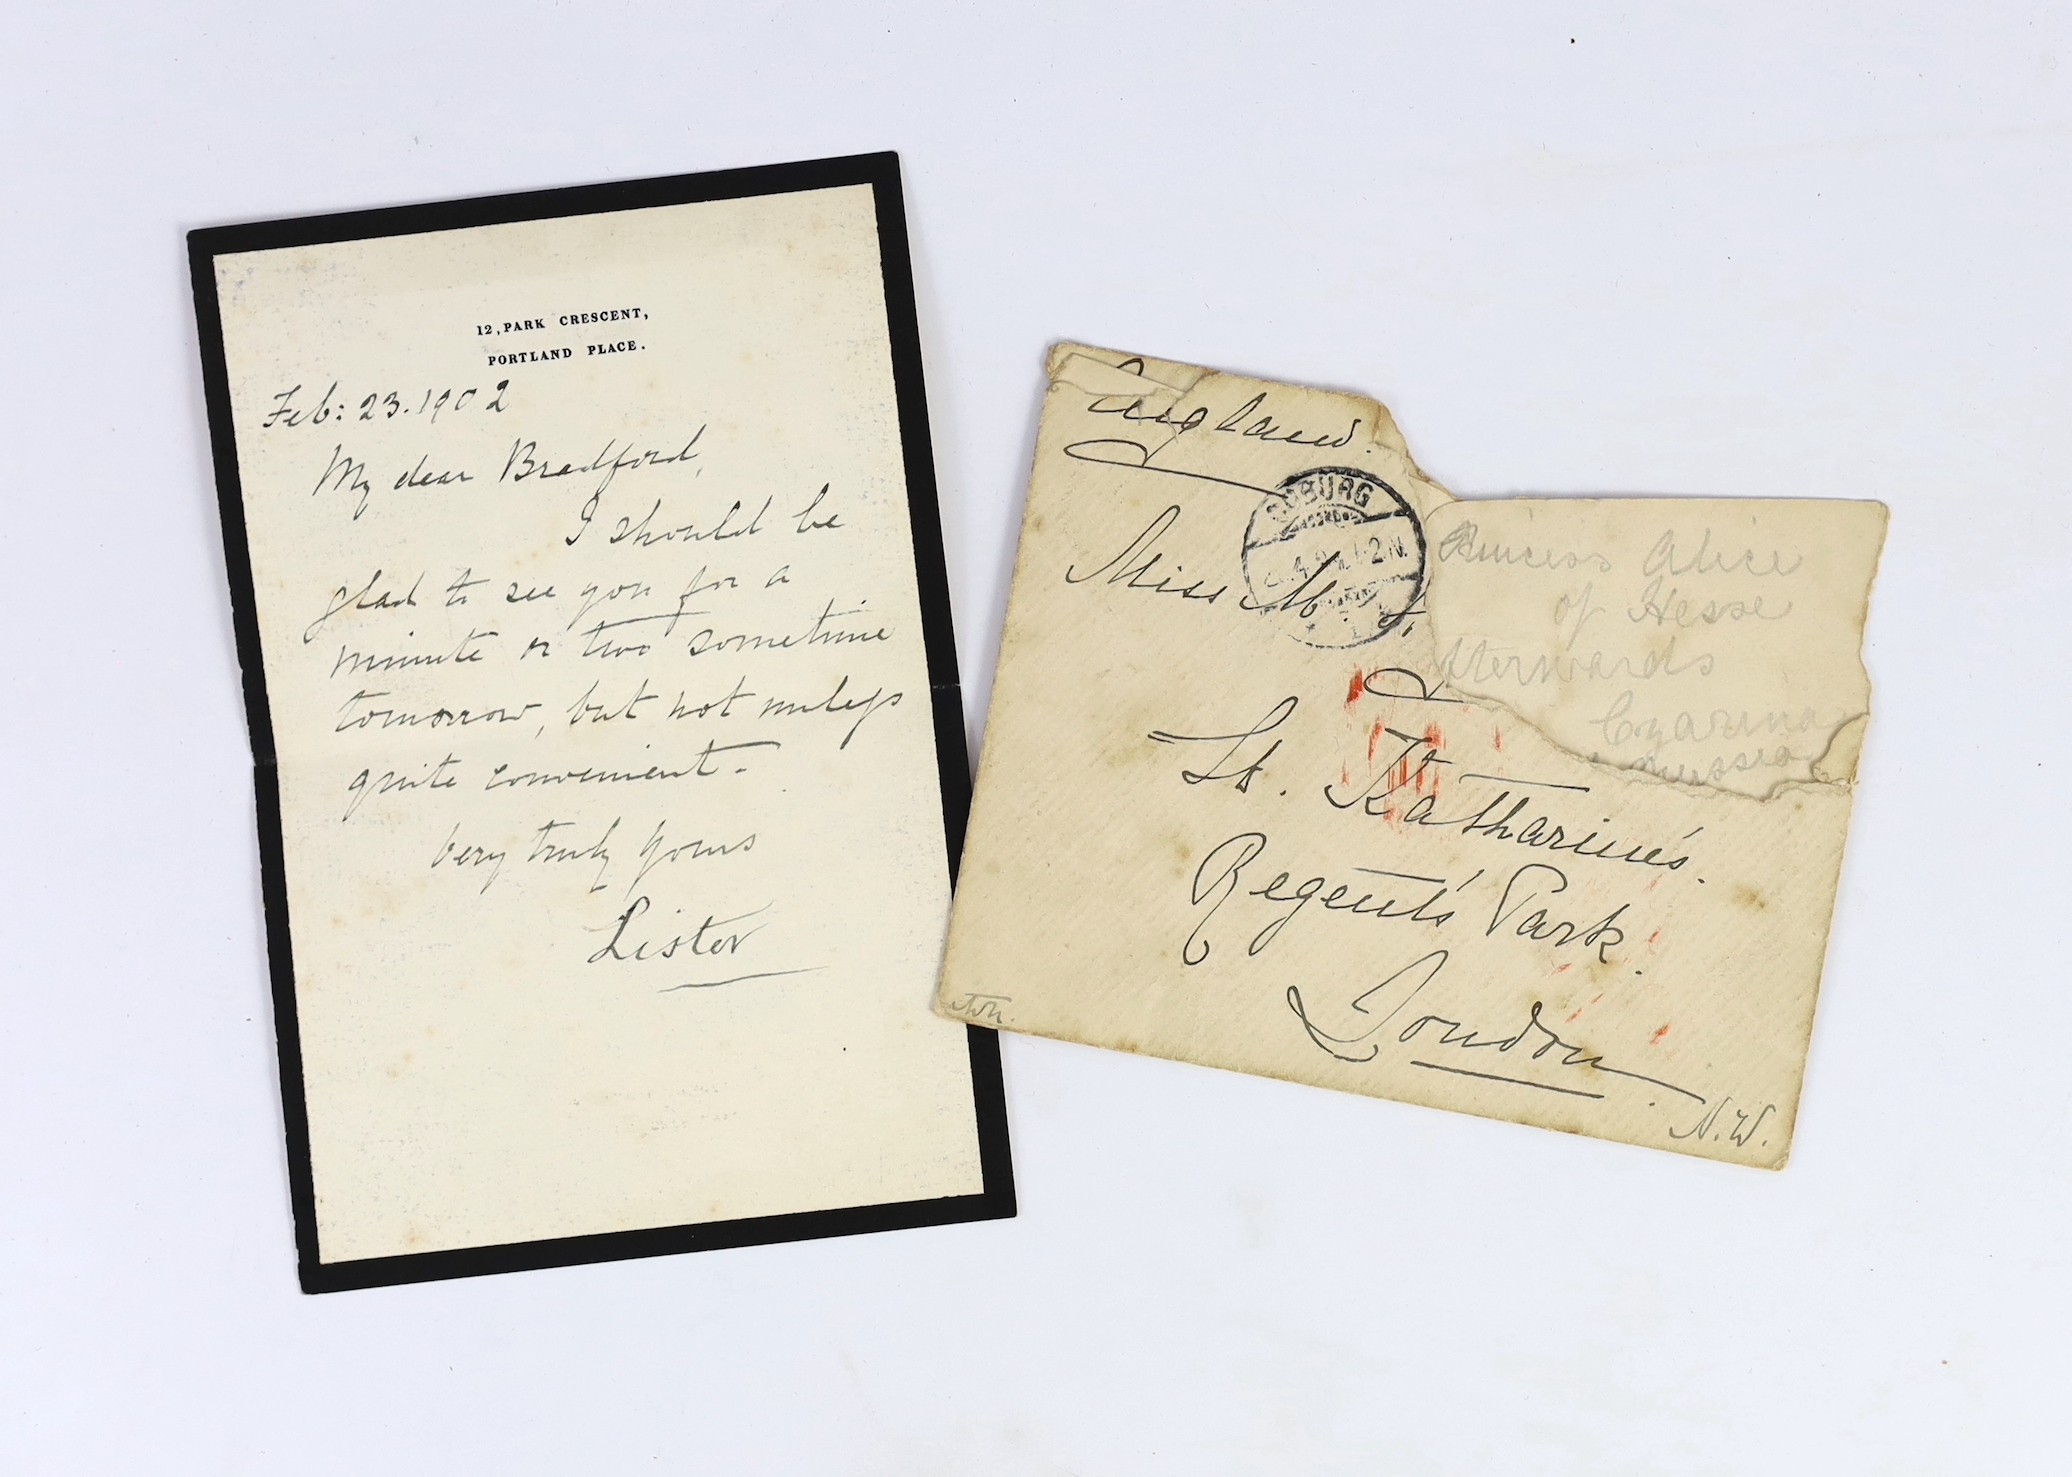 12, PARK CRESCENT,
PORTLAND PLACE.
Feb: 23. 1902
My dear Bradford,
I should be
glad to see you for a
minute or two sometime
tomorrow, but not unless
quite convenient.
Very truly yours
Lister
England.
COBURG
Miss M.
St. Katharine's.
Regent's Park.
London.
N.W.
Princess Alice
of Hesse
afterwards
Czarina
Russia